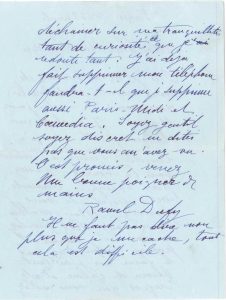 déchaîner sur ma tranquillité
tant de curiosité que je
redoute tant. J'ai déjà
fait supprimer mon téléphone
faudra-t-il que je supprime
aussi Paris-Midi et
Comoedia. Soyez gentil
soyez discret ne dites
pas que vous m'avez vu.
C'est promis, merci
Une bonne poignée de
mains
Raoul Dufy
Il ne faut pas non
plus que je me cache, tout
cela est difficile.